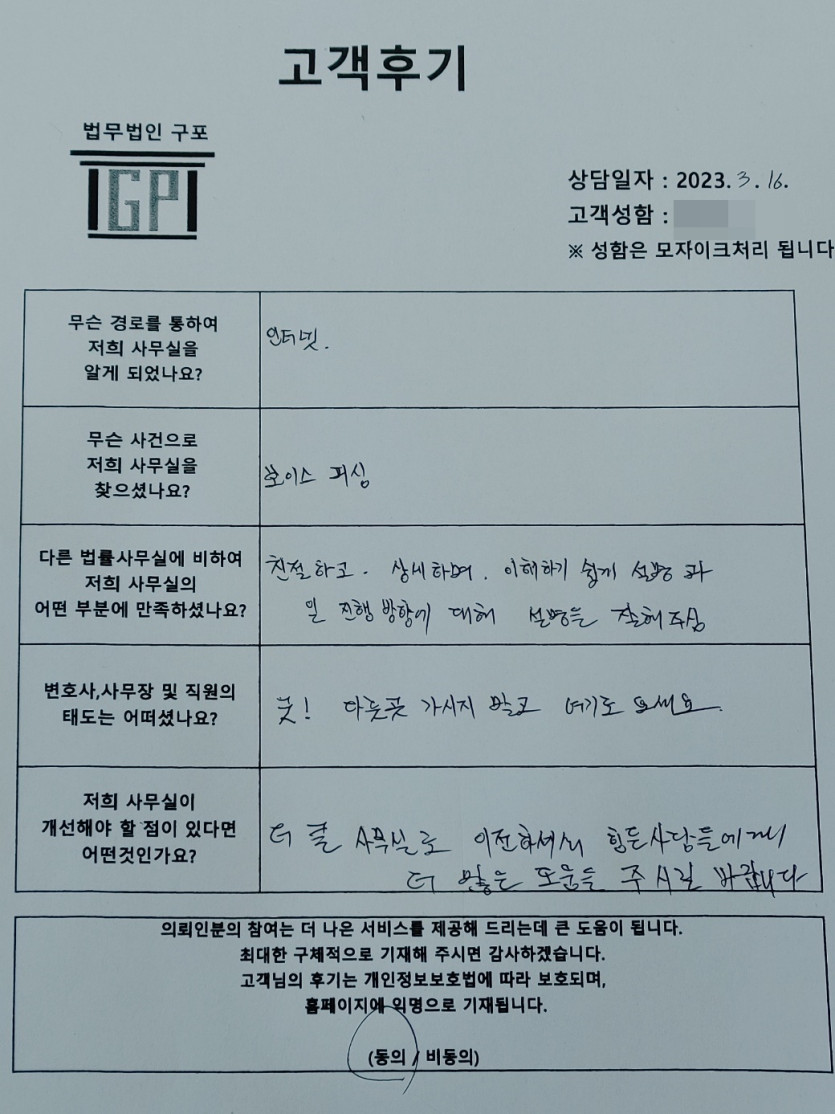 고객후기
법무법인 구포
IGPI
상담일자 : 2023. 3. 16.
고객성함 :
※ 성함은 모자이크처리 됩니다
무슨 경로를 통하여
저희 사무실을
알게 되었나요?
인터넷.
무슨 사건으로
저희 사무실을
찾으셨나요?
보이스 피싱
다른 법률사무실에 비하여
저희 사무실의
어떤 부분에 만족하셨나요?
친절하고. 상세하며. 이해하기 쉽게 설명 과
일 진행 방향에 대해 설명을 잘해주심
변호사,사무장 및 직원의
태도는 어떠셨나요?
굿! 다른곳 가시지 말고 여기로 오세요.
저희 사무실이
개선해야 할 점이 있다면
어떤것인가요?
더 큰 사무실로 이전하셔서 힘든사람들에게
더 많은 도움을 주시길 바랍니다
의뢰인분의 참여는 더 나은 서비스를 제공해 드리는데 큰 도움이 됩니다.
최대한 구체적으로 기재해 주시면 감사하겠습니다.
고객님의 후기는 개인정보보호법에 따라 보호되며,
홈페이지에 익명으로 기재됩니다.
(동의 / 비동의)